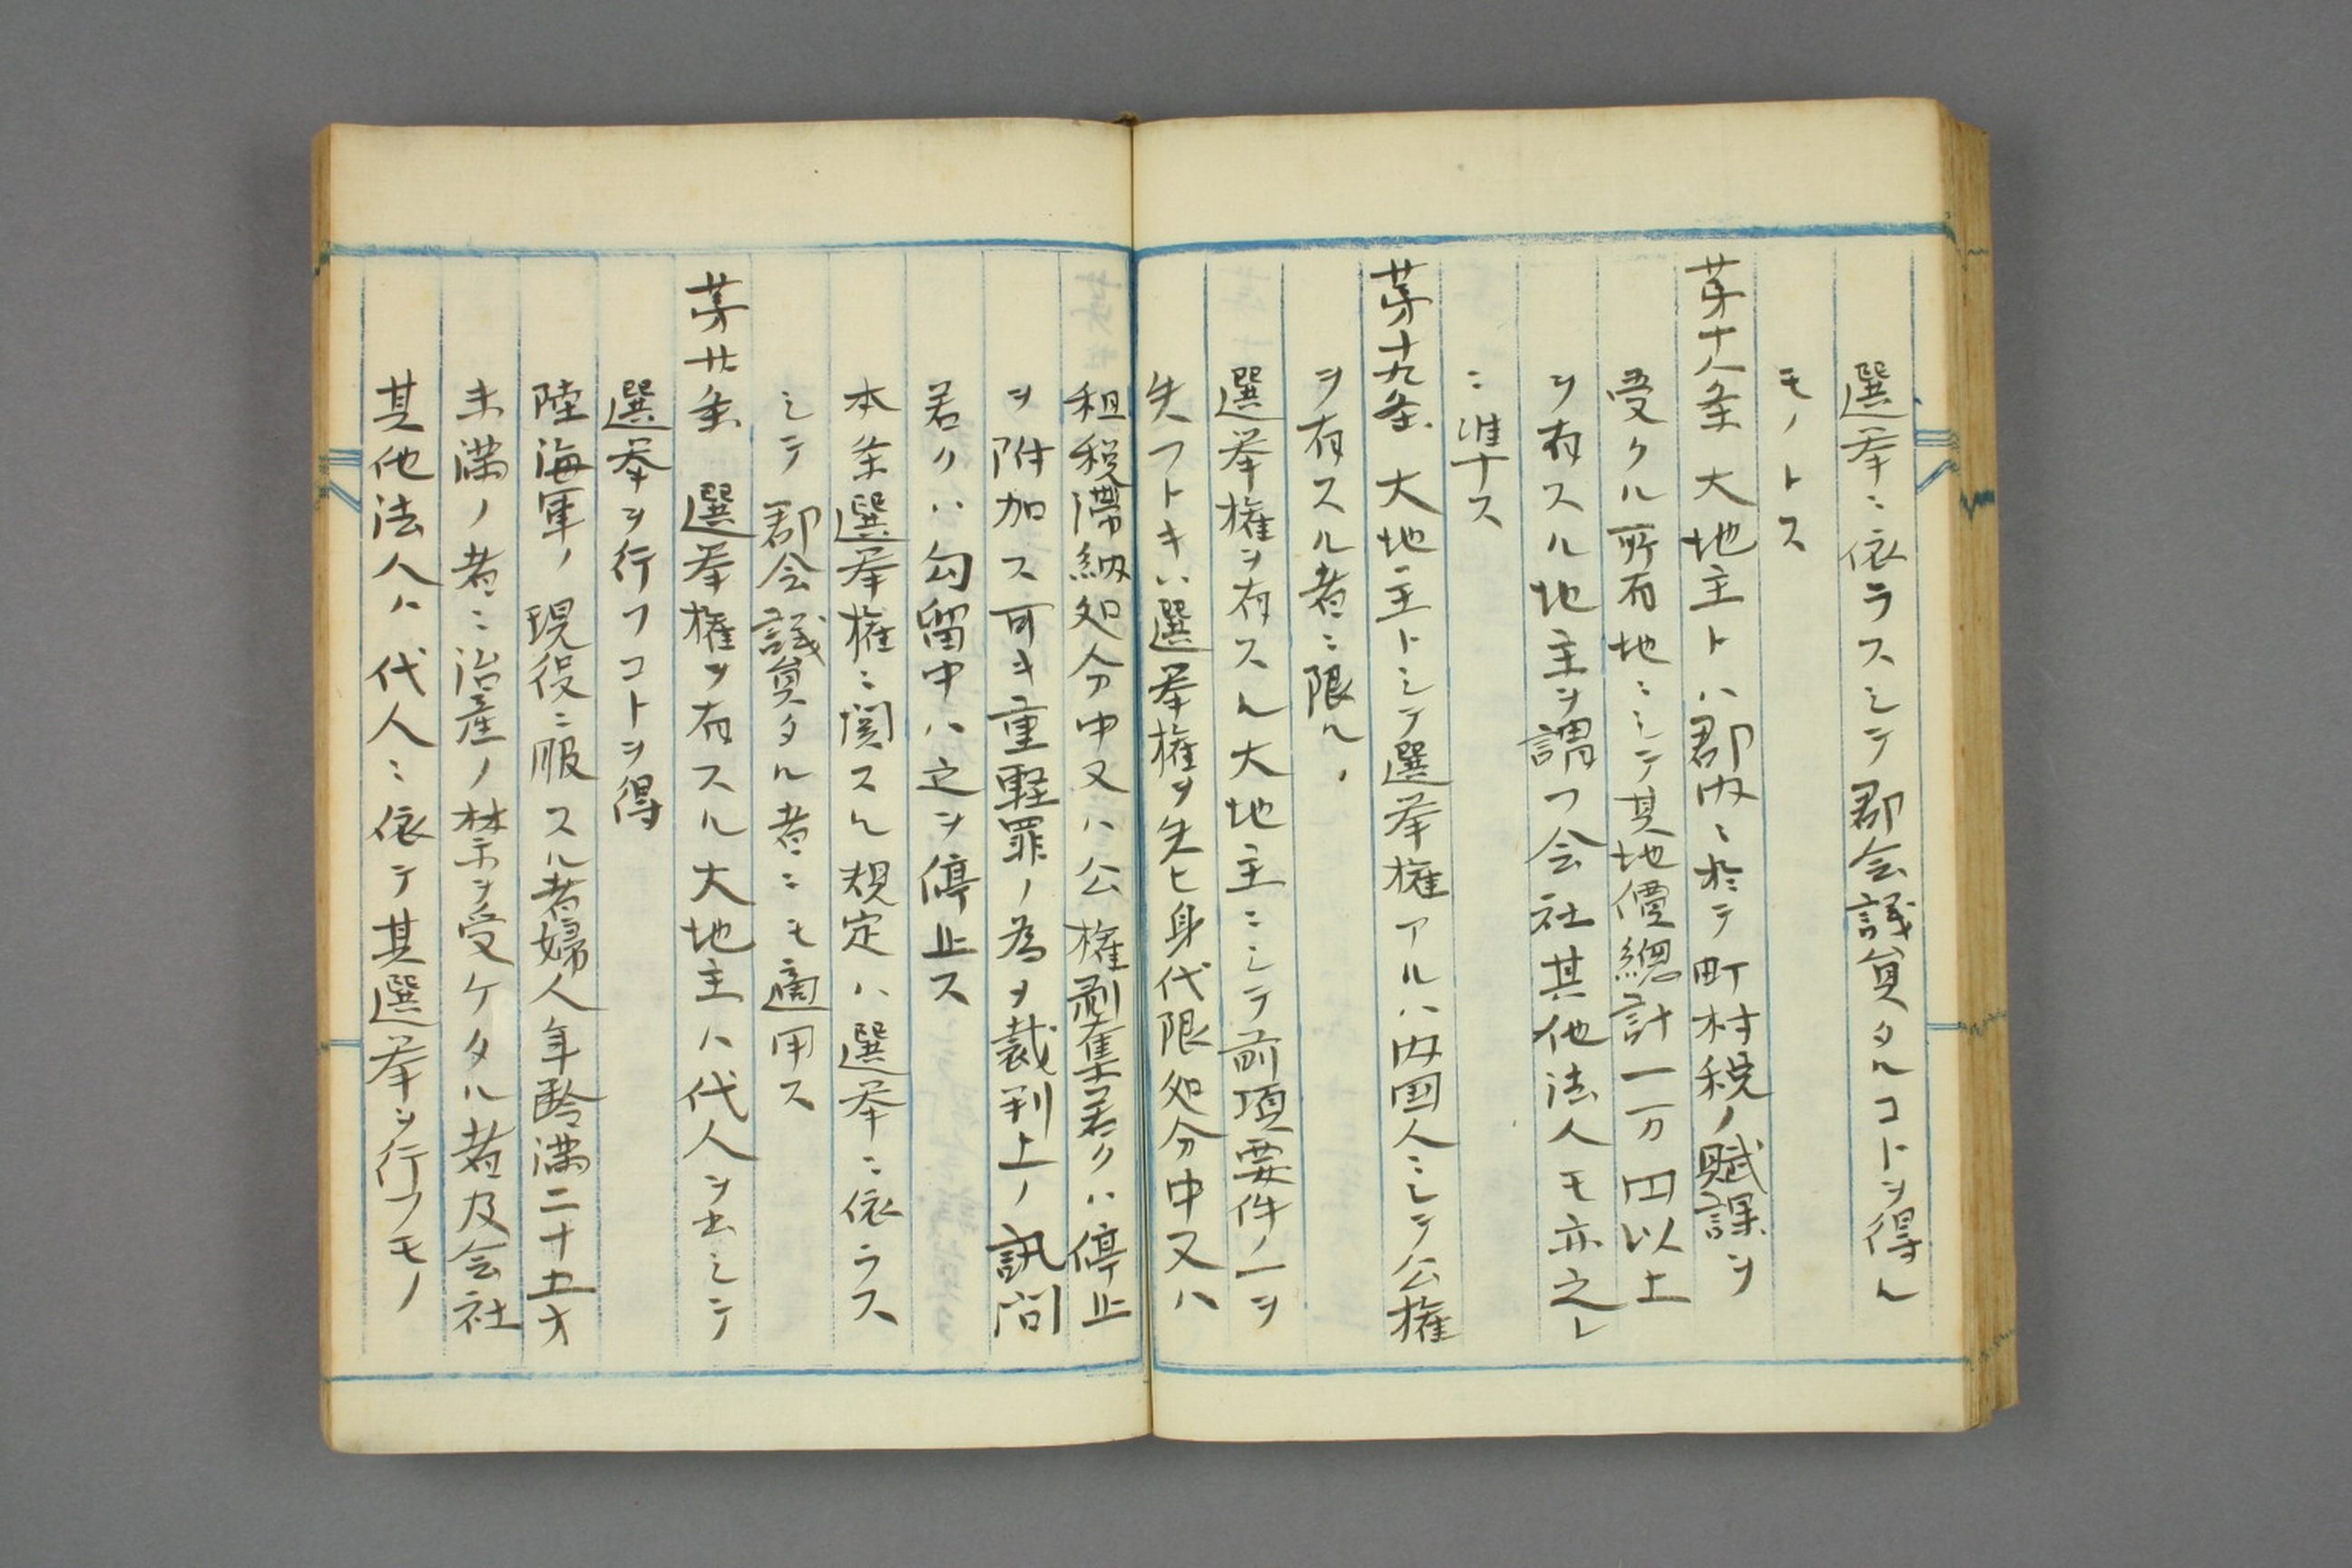 選挙ニ依ラスシテ郡会議員タルコトヲ得ル
モノトス
第十八条 大地主トハ郡内ニ於テ町村税ノ賦課ヲ
受クル所有地ニシテ其地價總計一万円以上
ヲ有スル地主ヲ謂フ会社其他法人モ亦之レ
ニ准ス
第十九条 大地主トシテ選挙権アルハ内国人ニシテ公権
ヲ有スル者ニ限ル、
選挙権ヲ有スル大地主ニシテ前項要件ノ一ヲ
失フトキハ選挙権ヲ失ヒ身代限処分中又ハ
租税滞納処分中又ハ公権剥奪若クハ停止
ヲ附加ス可キ重軽罪ノ為ヲ裁判上ノ訊問
若クハ勾留中ハ之ヲ停止ス
本条選挙権ニ関スル規定ハ選挙ニ依ラス
シテ郡会議員タル者ニモ適用ス
第廿条 選挙権ヲ有スル大地主ハ代人ヲ出シテ
選挙ヲ行フコトヲ得
陸海軍ノ現役ニ服スル者婦人年齢満二十五才
未満ノ者ニ治産ノ禁ヲ受ケタル者及会社
其他法人ハ代人ニ依テ其選挙ヲ行フモノ